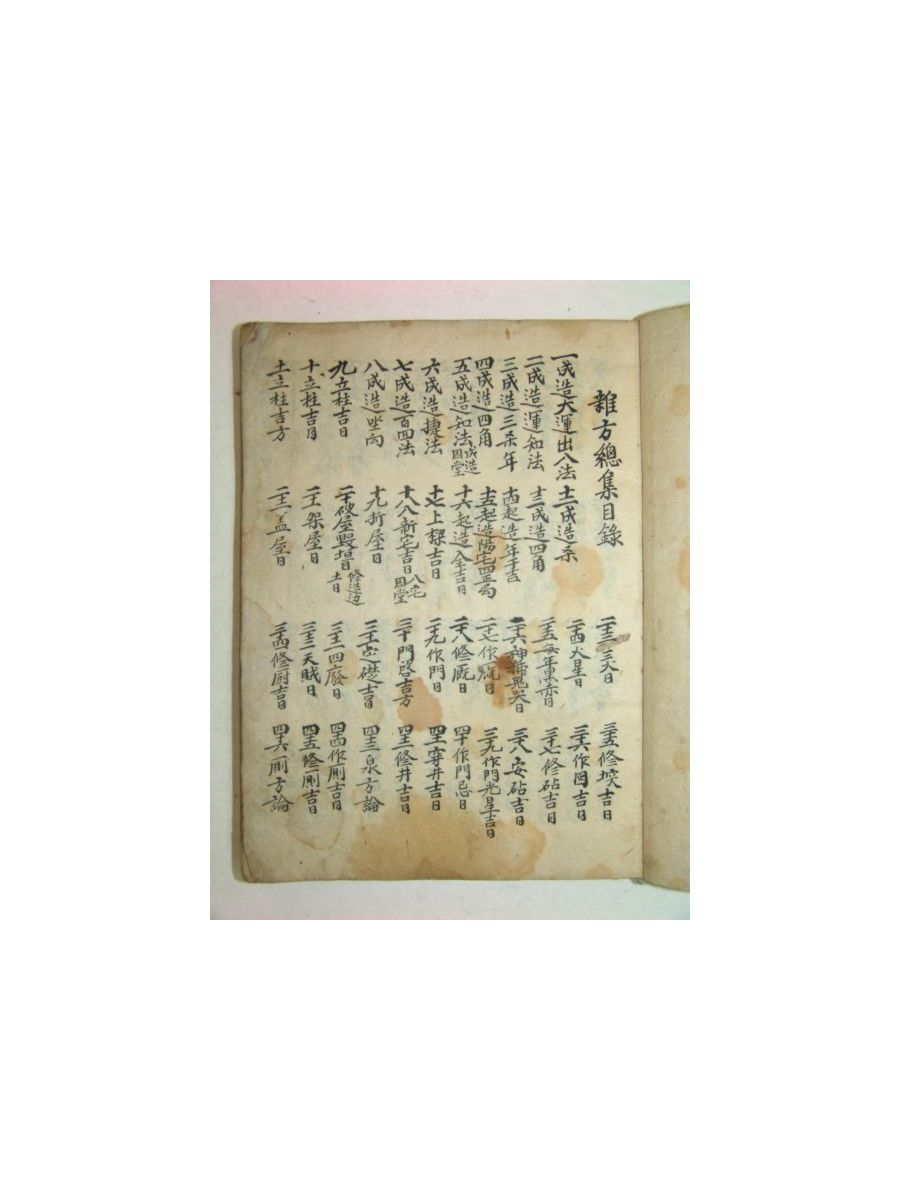 雜方總集目錄
一成造大運出八法
二成造運知法
三成造三杀年
四成造四角
五成造知法 成造周堂
六成造捷法
七成造百忌法
八成造坐向
九立柱吉日
十立柱吉月
十一立柱吉方
十二成造杀
十三成造四角
十四起造年干吉
十五起造陽宅四正局
十六起造全吉日
十七上樑吉日
十八入新宅吉日 入宅周堂
十九折屋日
二十破屋毀墻日 修造迈土日
二十一架屋日
二十二盖屋日
二十三三火日
二十四火星日
二十五每年黑赤日
二十六神號鬼哭日
二十七作厩日
二十八修厩日
二十九作門日
三十門路吉方
三十一定礎吉日
三十二四廢日
三十三天賊日
三十四修厨吉日
三十五修埃吉日
三十六作吉日
三十七修砧吉日
三十八安砧吉日
三十九作門光星吉日
四十作門忌日
四十一穿井吉日
四十二修井吉日
四十三泉方論
四十四作厠吉日
四十五修厠吉日
四十六厠方論